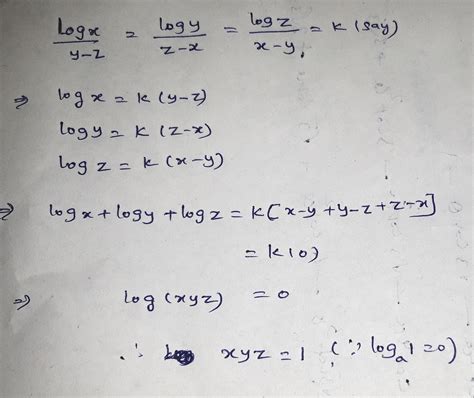 log x / y-z = log y / z-x = log z / x-y = k (say)
⇒ log x = k (y-z)
log y = k (z-x)
log z = k (x-y)
⇒ log x + log y + log z = k[x-y + y-z + z-x]
= k(0)
⇒ log (xyz) = 0
∴ xyz = 1 (∵ logₐ1 = 0)